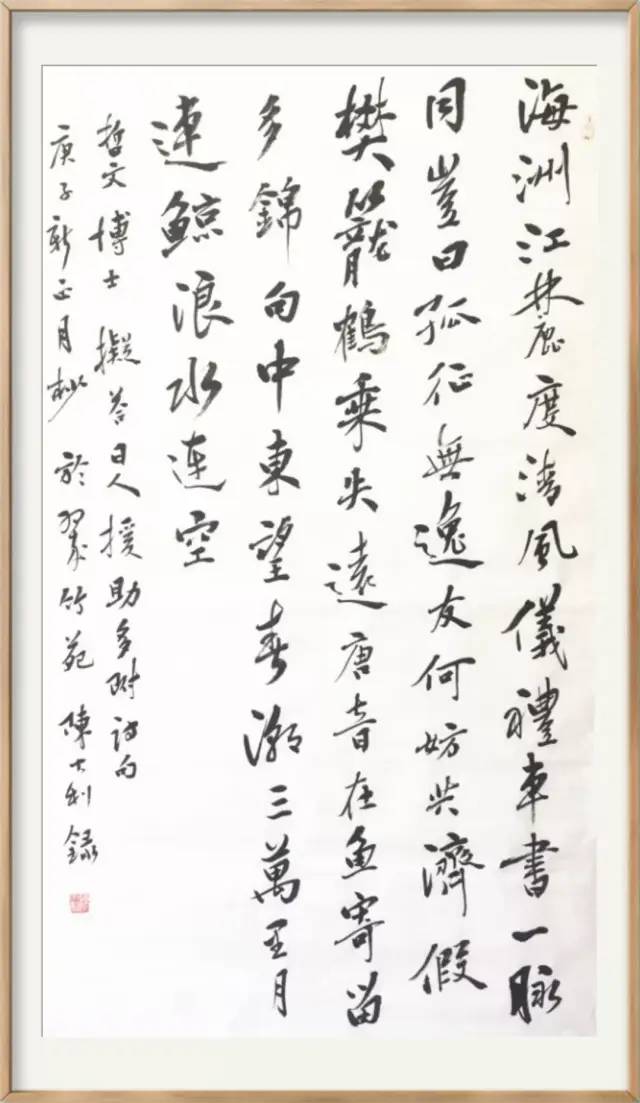 海洲江麓度清風儀禮車書一脉
同豈曰孤征無逸友何妨共濟假
樊籠鶴乘失遠唐音在魚寄留
多錦句中東望春潮三萬里月
連鯨浪水連空
哲文博士 擬答日人援助多附詩句
庚子新正月杪 於翠竹苑 陳利 錄